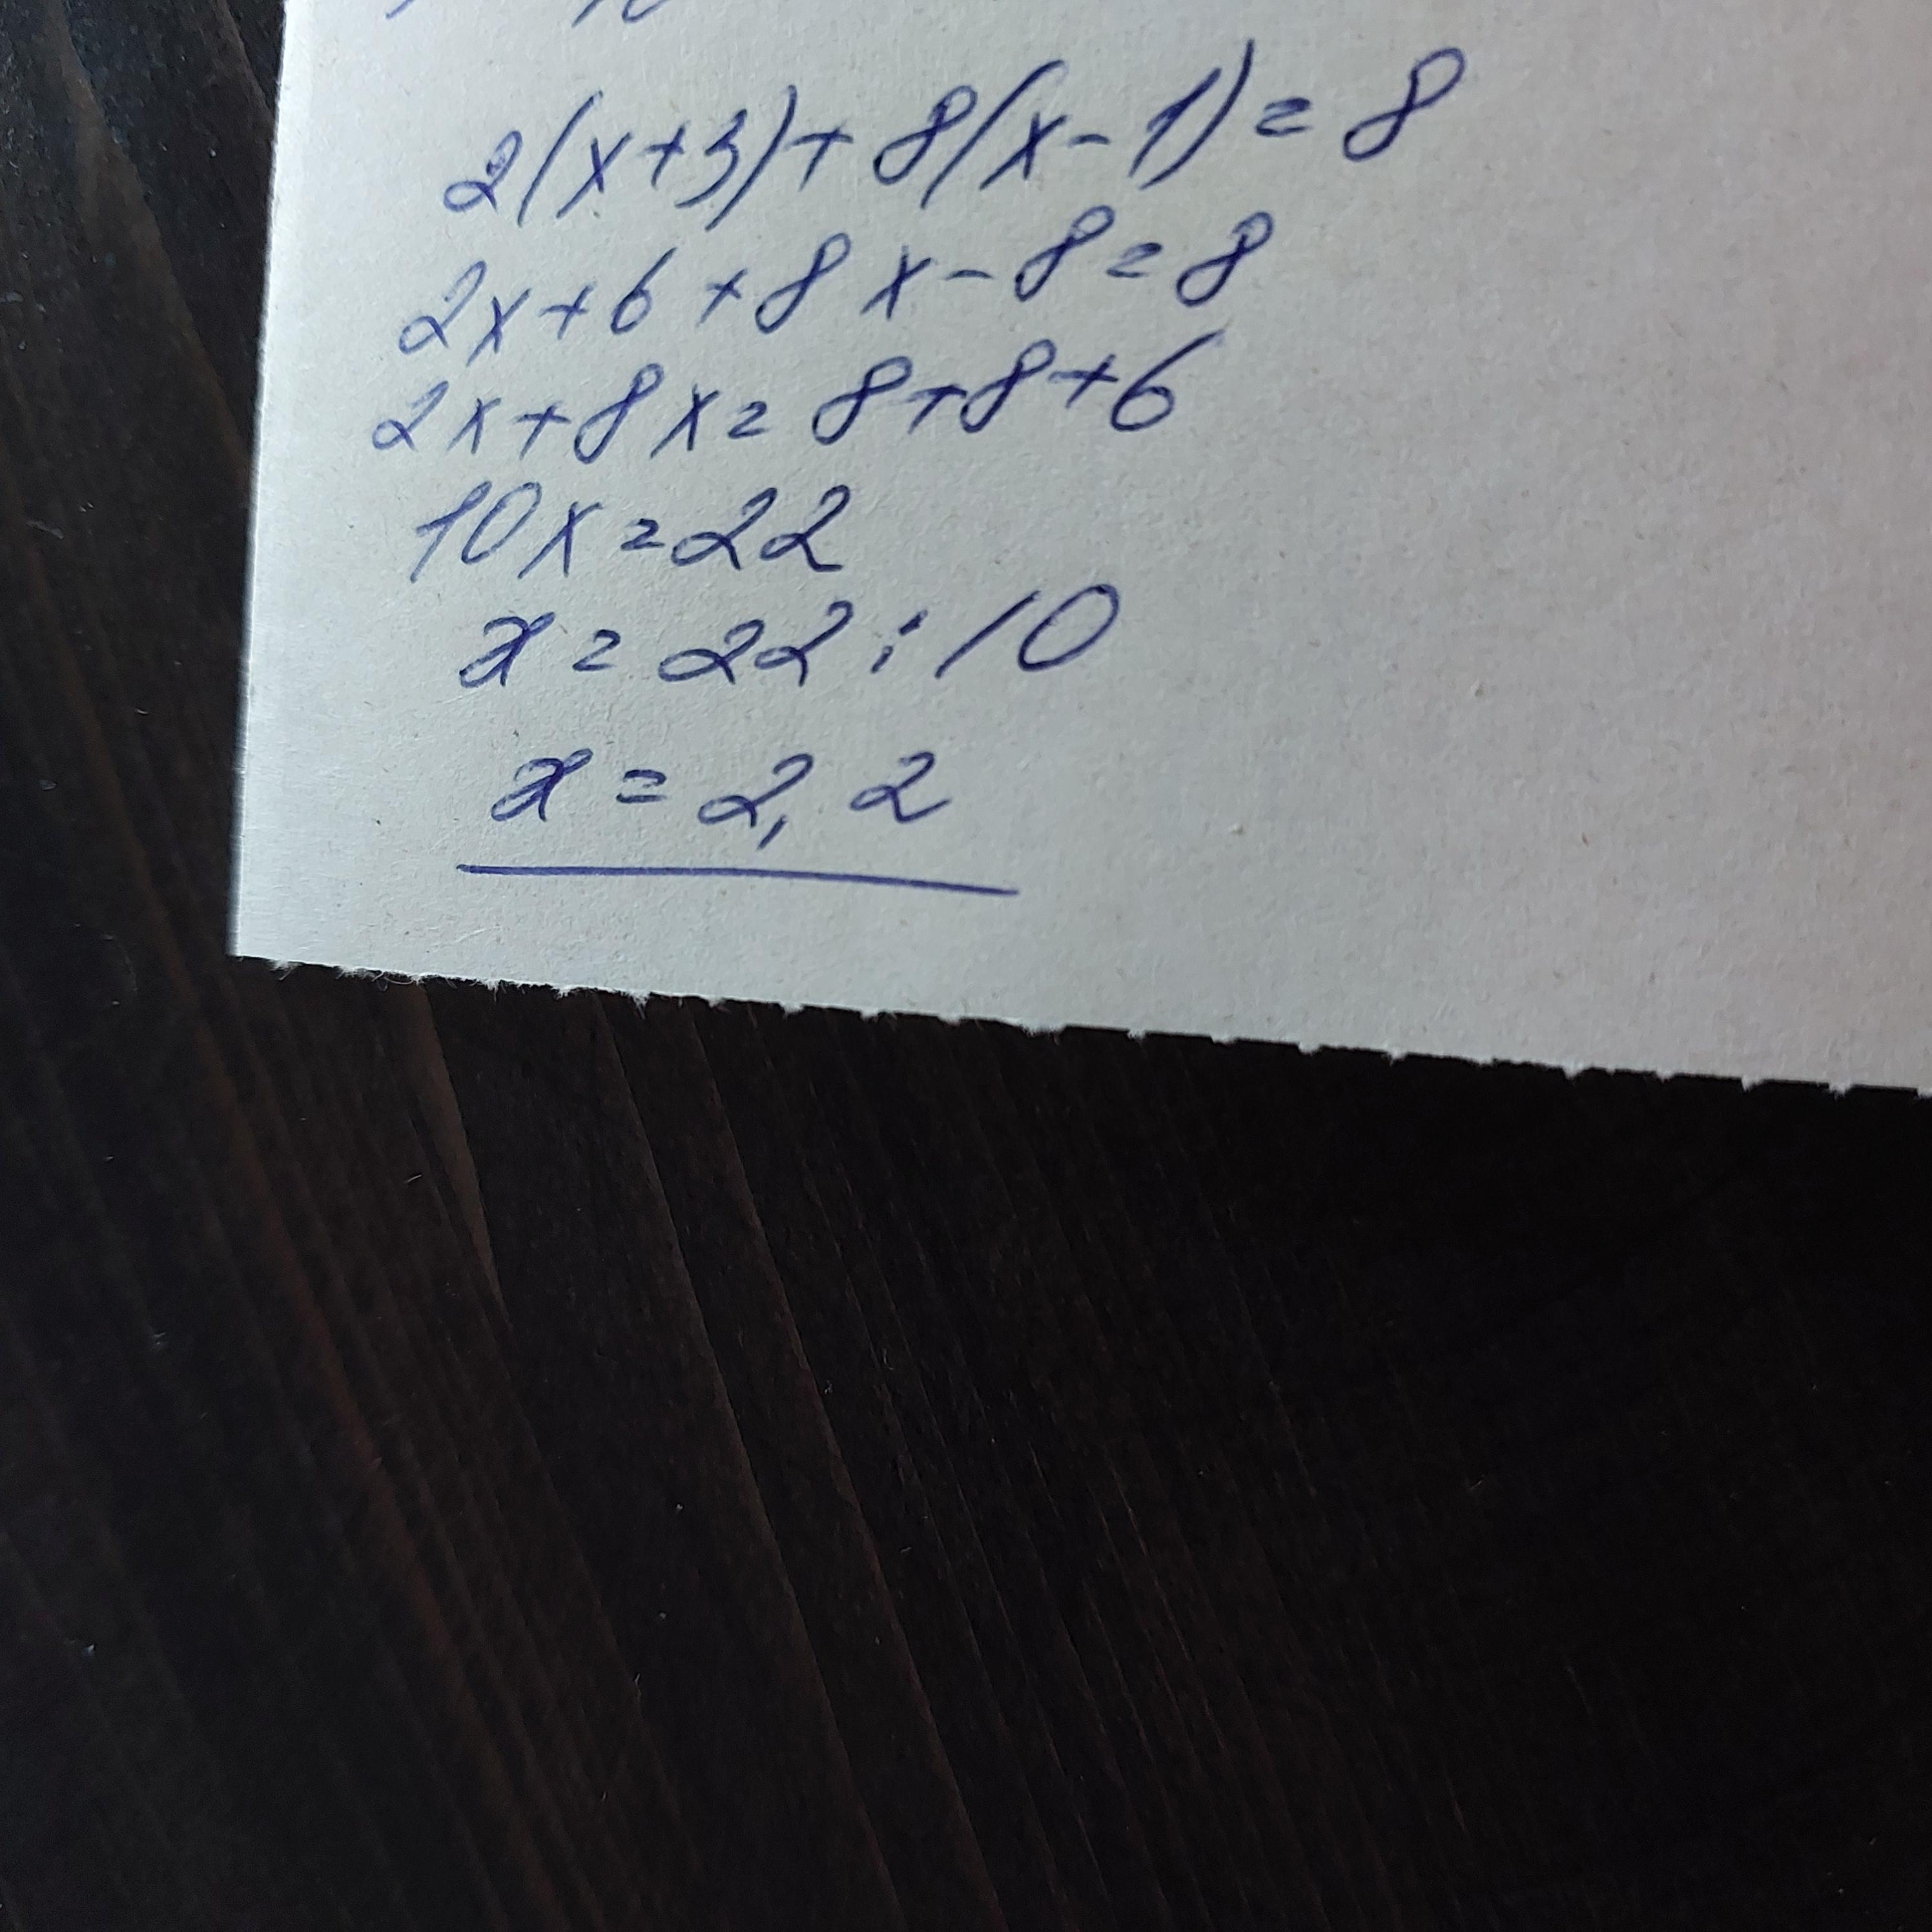 2(x+3)+8(x-1)=8
2x+6+8x-8=8
2x+8x=8+8+6
10x=22
x=22:10
x=2,2